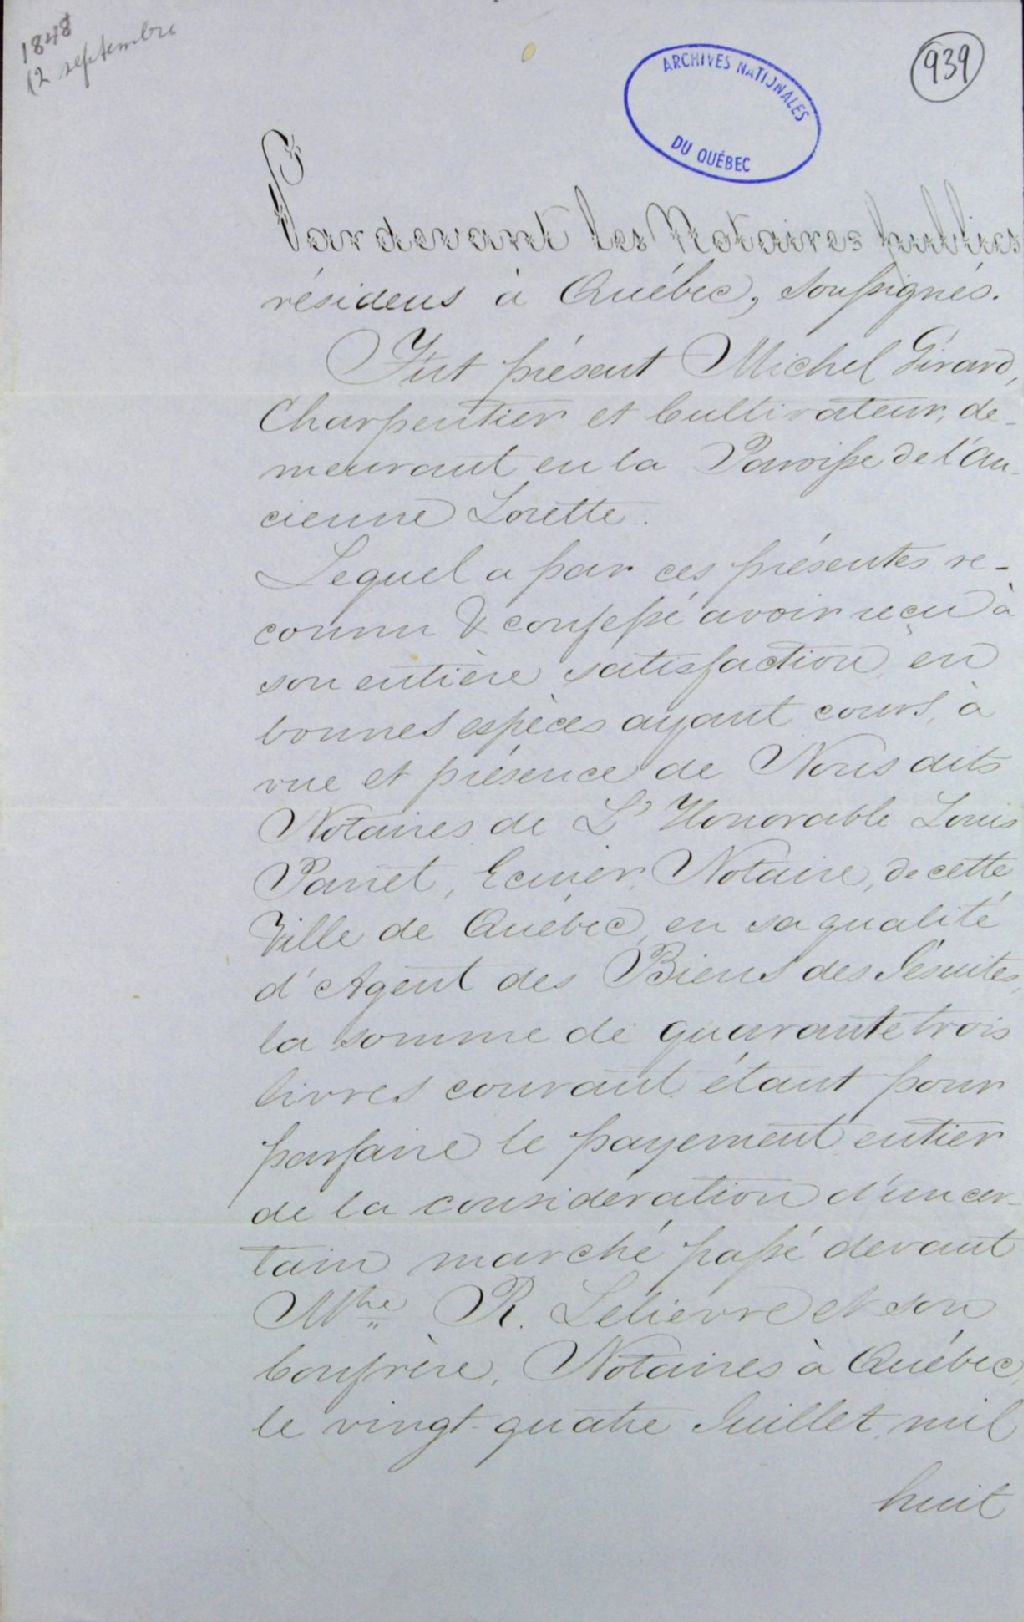 1848
12 septembre
ARCHIVES NATIONALES
DU QUÉBEC
939
Pardevant les Notaires publics
résidens à Québec, soussignés.
Fut présent Michel Girard,
Charpentier et Cultivateur, de-
meurant en la Paroisse de l'An-
cienne Lorette.
Lequel a par ces présentes re-
connu & confessé avoir reçu à
son entière satisfaction en
bonnes espèces ayant cours, à
vue et présence de Nous dits
Notaires de L'Honorable Louis
Panet, Ecuier, Notaire, de cette
Ville de Québec, en sa qualité
d'Agent des Biens des Jésuites,
la somme de quarante trois
livres courant étant pour
parfaire le payement entier
de la considération d'un cer-
tain marché passé devant
Mtre R. Lelievre et son
Confrère, Notaires à Québec,
le vingt-quatre Juillet mil
huit